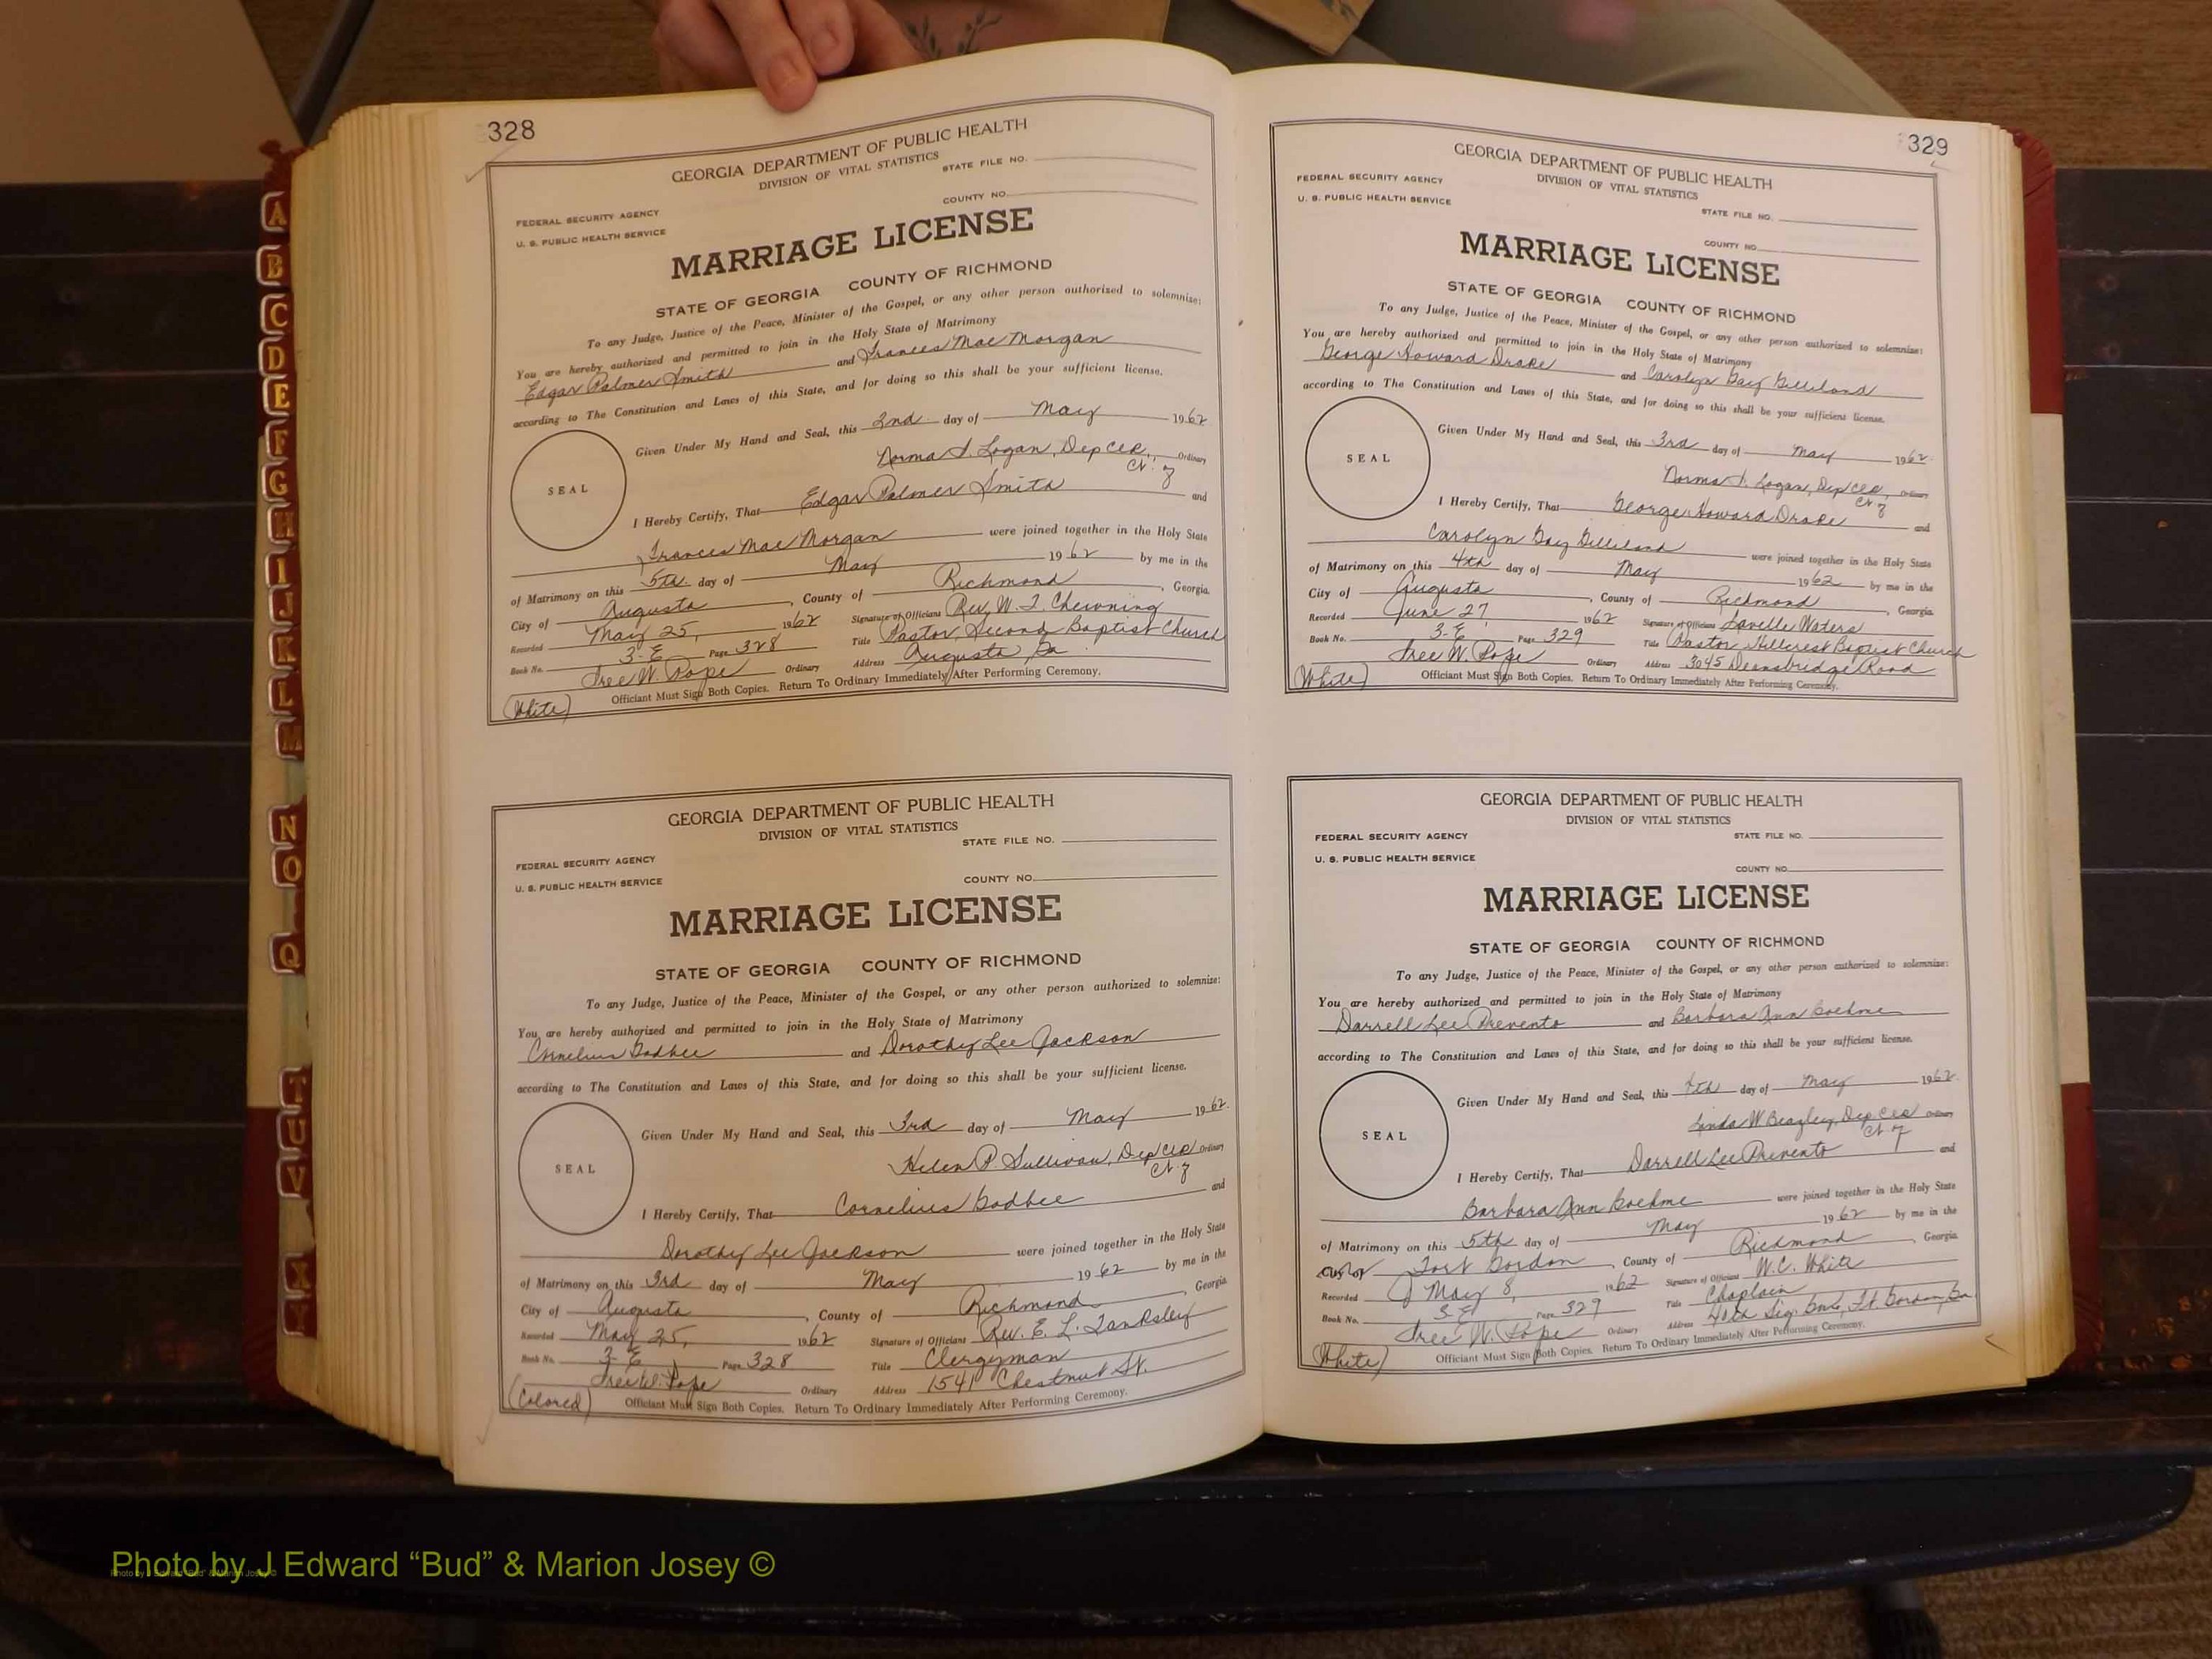 328
GEORGIA DEPARTMENT OF PUBLIC HEALTH
DIVISION OF VITAL STATISTICS
STATE FILE NO.
COUNTY NO.
FEDERAL SECURITY AGENCY
U. S. PUBLIC HEALTH SERVICE
MARRIAGE LICENSE
STATE OF GEORGIA COUNTY OF RICHMOND
To any Judge, Justice of the Peace, Minister of the Gospel, or any other person authorized to solemnize:
You are hereby authorized and permitted to join in the Holy State of Matrimony
Edgar Palmer Smith and Frances Mae Morgan
according to The Constitution and Laws of this State, and for doing so this shall be your sufficient license.
Given Under My Hand and Seal, this 2nd day of May 1962
SEAL
Norma I. Logan, Dep Clk, Ordinary
Ct. of
I Hereby Certify, That Edgar Palmer Smith and
Frances Mae Morgan were joined together in the Holy State
of Matrimony on this 5th day of May 1962 by me in the
City of Augusta, County of Richmond, Georgia.
Recorded May 25, 1962 Signature of Officiant Rev. W. J. Chewning
Book No. 3-E Page 328 Title Pastor, Second Baptist Church
Free W. Pope Ordinary Address Augusta, Ga.
(White) Officiant Must Sign Both Copies. Return To Ordinary Immediately After Performing Ceremony.
GEORGIA DEPARTMENT OF PUBLIC HEALTH
DIVISION OF VITAL STATISTICS
STATE FILE NO.
FEDERAL SECURITY AGENCY
U. S. PUBLIC HEALTH SERVICE
COUNTY NO.
MARRIAGE LICENSE
STATE OF GEORGIA COUNTY OF RICHMOND
To any Judge, Justice of the Peace, Minister of the Gospel, or any other person authorized to solemnize:
You are hereby authorized and permitted to join in the Holy State of Matrimony
Cornelius Godbee and Dorothy Lee Jackson
according to The Constitution and Laws of this State, and for doing so this shall be your sufficient license.
Given Under My Hand and Seal, this 3rd day of May 1962
SEAL
Helen P. Sullivan, Dep Clk Ordinary
Ct. of
I Hereby Certify, That Cornelius Godbee and
Dorothy Lee Jackson were joined together in the Holy State
of Matrimony on this 3rd day of May 1962 by me in the
City of Augusta, County of Richmond, Georgia
Recorded May 25, 1962 Signature of Officiant Rev. E. L. Tanksley
Book No. 3-E Page 328 Title Clergyman
Free W. Pope Ordinary Address 1541 Chestnut St.
(Colored) Officiant Must Sign Both Copies. Return To Ordinary Immediately After Performing Ceremony.
329
GEORGIA DEPARTMENT OF PUBLIC HEALTH
DIVISION OF VITAL STATISTICS
FEDERAL SECURITY AGENCY
U. S. PUBLIC HEALTH SERVICE
STATE FILE NO.
COUNTY NO.
MARRIAGE LICENSE
STATE OF GEORGIA COUNTY OF RICHMOND
To any Judge, Justice of the Peace, Minister of the Gospel, or any other person authorized to solemnize:
You are hereby authorized and permitted to join in the Holy State of Matrimony
George Howard Drake and Carolyn Gay Gilleland
according to The Constitution and Laws of this State, and for doing so this shall be your sufficient license.
Given Under My Hand and Seal, this 3rd day of May 1962
SEAL
Norma I. Logan, Dep Clk, Ordinary
Ct. of
I Hereby Certify, That George Howard Drake and
Carolyn Gay Gilleland were joined together in the Holy State
of Matrimony on this 4th day of May 1962 by me in the
City of Augusta, County of Richmond, Georgia.
Recorded June 27, 1962 Signature of Officiant Lavelle Waters
Book No. 3-E Page 329 Title Pastor Hillcrest Baptist Church
Free W. Pope Ordinary Address 3045 Deansbridge Road
(White) Officiant Must Sign Both Copies. Return To Ordinary Immediately After Performing Ceremony.
GEORGIA DEPARTMENT OF PUBLIC HEALTH
DIVISION OF VITAL STATISTICS
FEDERAL SECURITY AGENCY STATE FILE NO.
U. S. PUBLIC HEALTH SERVICE
COUNTY NO.
MARRIAGE LICENSE
STATE OF GEORGIA COUNTY OF RICHMOND
To any Judge, Justice of the Peace, Minister of the Gospel, or any other person authorized to solemnize:
You are hereby authorized and permitted to join in the Holy State of Matrimony
Darrell Lee Prevento and Barbara Ann Boehme
according to The Constitution and Laws of this State, and for doing so this shall be your sufficient license.
Given Under My Hand and Seal, this 4th day of May 1962
SEAL
Linda W Beazley, Dep Clk Ordinary
Ct. of
I Hereby Certify, That Darrell Lee Prevento and
Barbara Ann Boehme were joined together in the Holy State
of Matrimony on this 5th day of May 1962 by me in the
City of Fort Gordon, County of Richmond, Georgia
Recorded May 8, 1962 Signature of Officiant W.C. White
Book No. 3-E Page 329 Title Chaplain
Free W. Pope Ordinary Address 40th Sig. Ft. Gordon, Ga
(White) Officiant Must Sign Both Copies. Return To Ordinary Immediately After Performing Ceremony.
A
B
C
D
E
F
G
H
I
J
K
L
M
N
O
Q
T
U
V
X
Y
Photo by J Edward “Bud” & Marion Josey ©